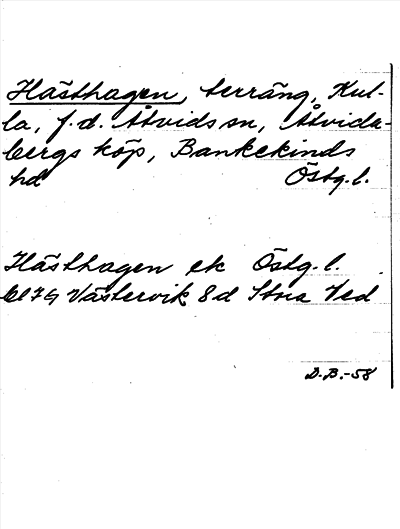 Hästhagen, terräng, Kul-
la, f.d. Åtvids sn, Åtvida-
bergs köp, Bankekinds
hd Östg.l.
Hästhagen ek Östg.l.
Västervik 8d Stora Ved
D.B.-58